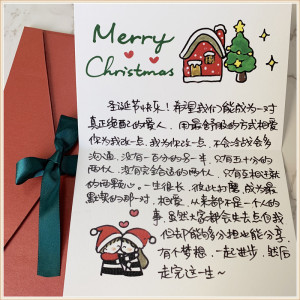 Merry
Christmas
圣诞节快乐！希望我们能成为一对
真正绝配的爱人，用最舒服的方式相爱
你为我改一点，我为你改一点，不会冷战会多
沟通，没有一百分的另一半，只有五十分的
两个人，没有完全合适的两个人，只有互相迁就
的两颗心。一生很长，彼此打磨，成为最
默契的那一对，相爱，从来都不是一个人的
事，虽然大家都会失去点自我
但却能够多分担也能分享，
有个梦想，一起进步，然后
走完这一生～